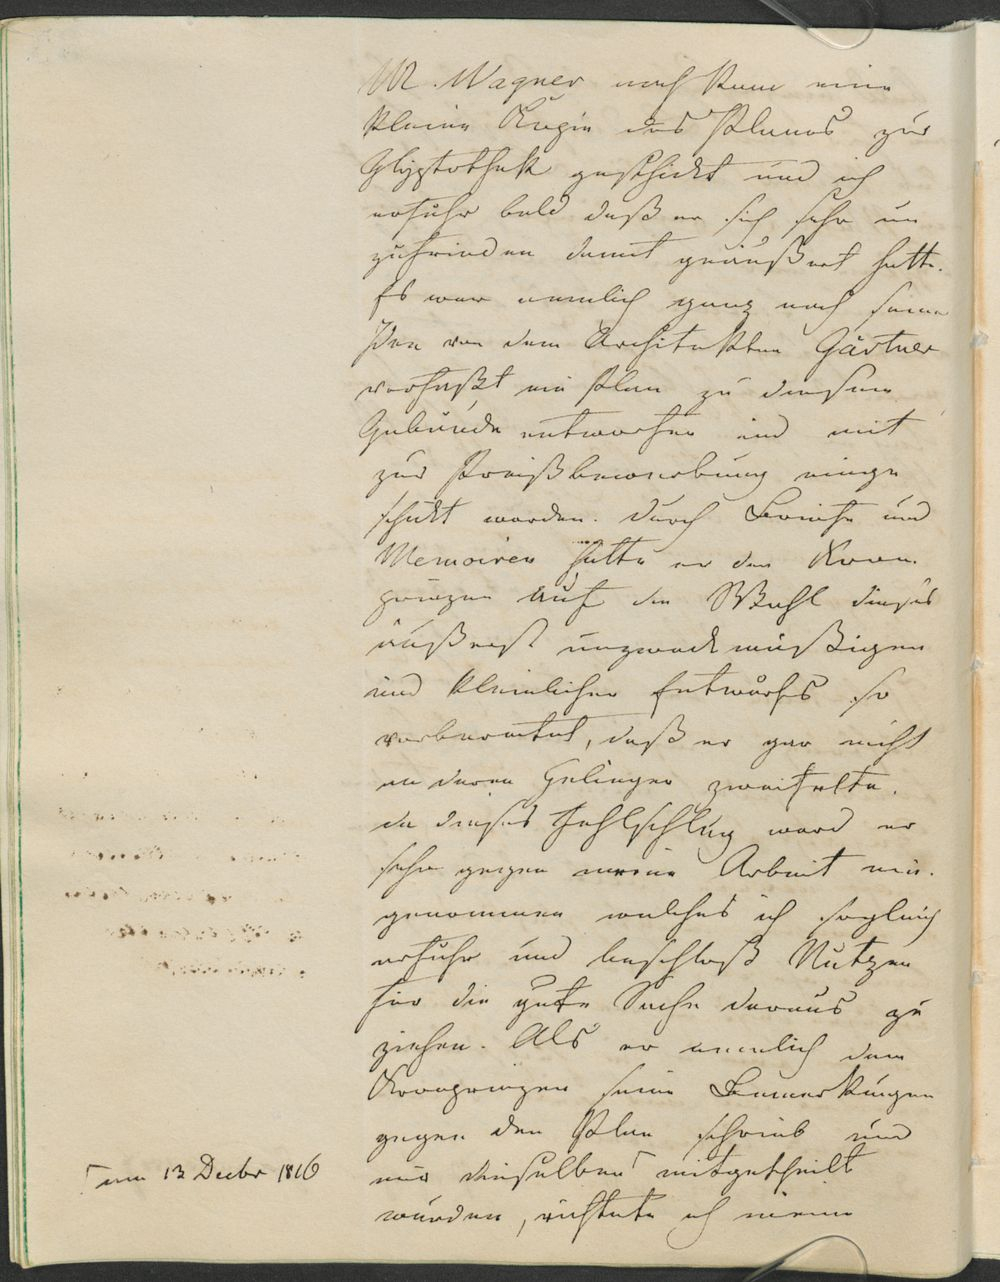 M. Wagner nach Rom eine
kleine Kopie des Planes zur
Glyptothek geschickt und ich
erfuhr bald daß er sich sehr un
zufrieden damit geäußert hatte.
Es war nemlich ganz nach seiner
Idee von dem Architekten Gärtner
verfaßt ein Plan zu diesem
Gebäude entworfen und mit
zur Preißbewerbung einge
schickt worden. Durch Briefe und
Memoiren hatte er den Kron
prinzen auf die Wahl dieses
äußerst unzweckmäßigen
und kleinlichen Entwurfs so
vorbereitet, daß er gar nicht
an deren Gelingen zweifelte.
Da dieses fehlschlug ward er
sehr gegen meine Arbeit ein.
genommen welches ich sogleich
erfuhr und beschloß Nutzen
für die gute Sache daraus zu
ziehen. Als er nemlich dem
Kronprinzen seine Bemerkungen
gegen den Plan schrieb und
mir dieselben ⌈ mitgetheilt
wurden, richtete ich meine
⌈ am 13 Decbr 1816